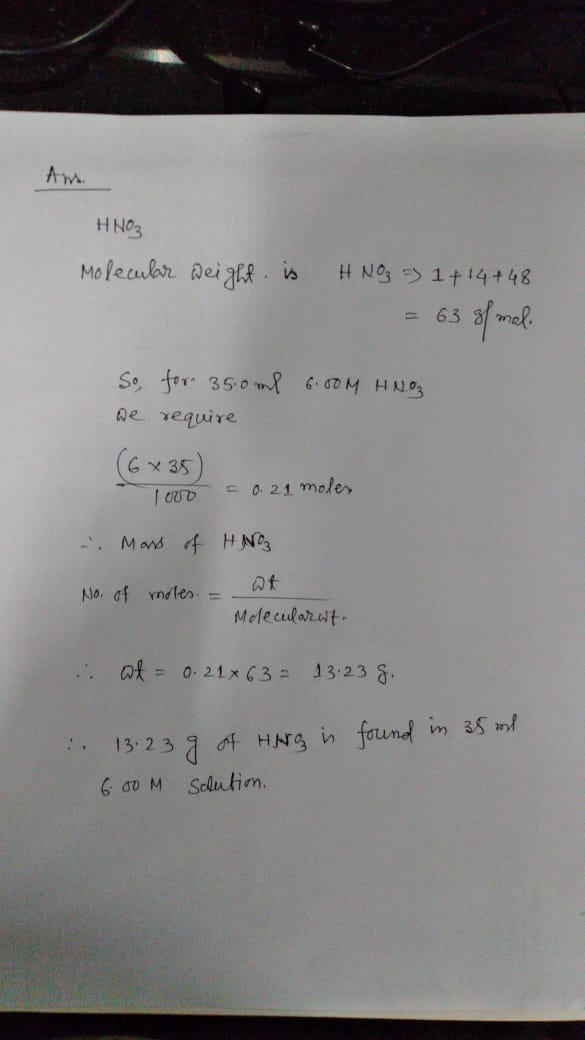 Ans.
HNO3
Molecular weight. is HNO3 => 1+14+48
= 63 g/mol.
So, for 35.0 ml 6.00M HNO3
we require
(6 × 35)
1000 = 0.21 moles
∴ Mass of HNO3
No. of moles. = wt
Molecular wt.
∴ wt = 0.21 × 63 = 13.23 g.
∴ 13.23 g of HNO3 is found in 35 ml
6.00 M Solution.